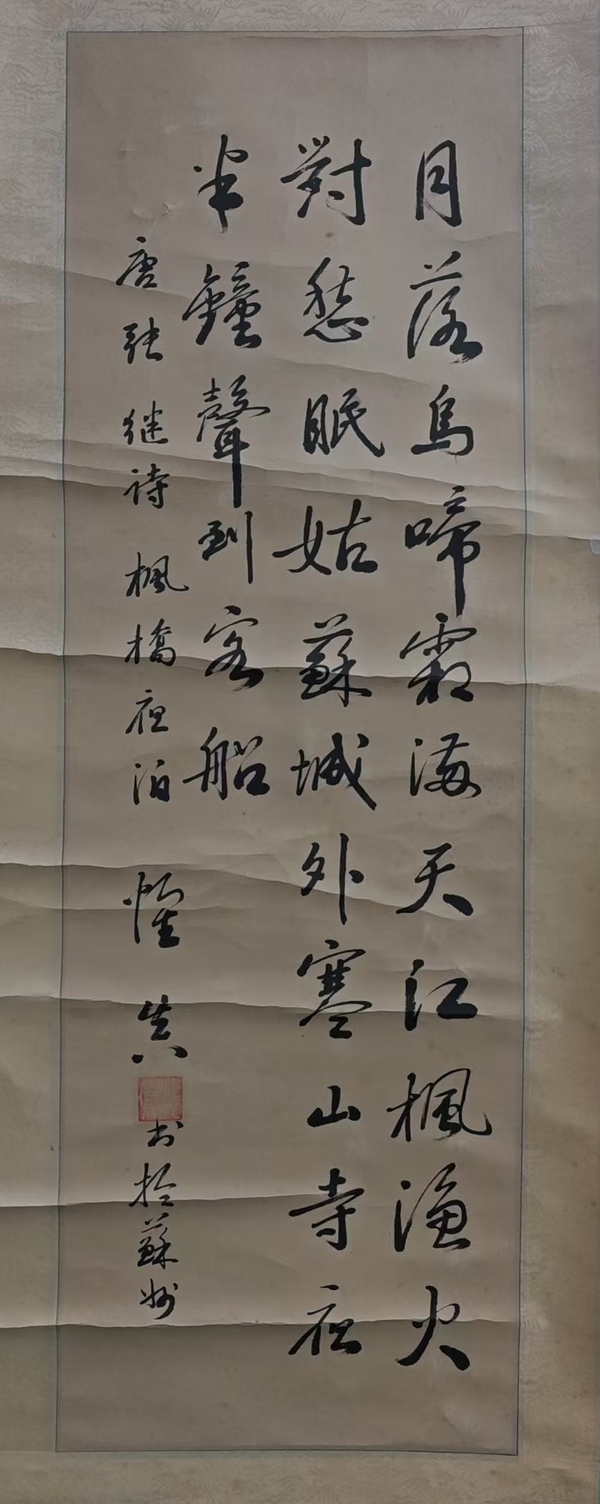 月落烏啼霜滿天江楓漁火
對愁眠姑蘇城外寒山寺夜
半鐘聲到客船
唐張继诗楓橋夜泊 惟真书於蘇州